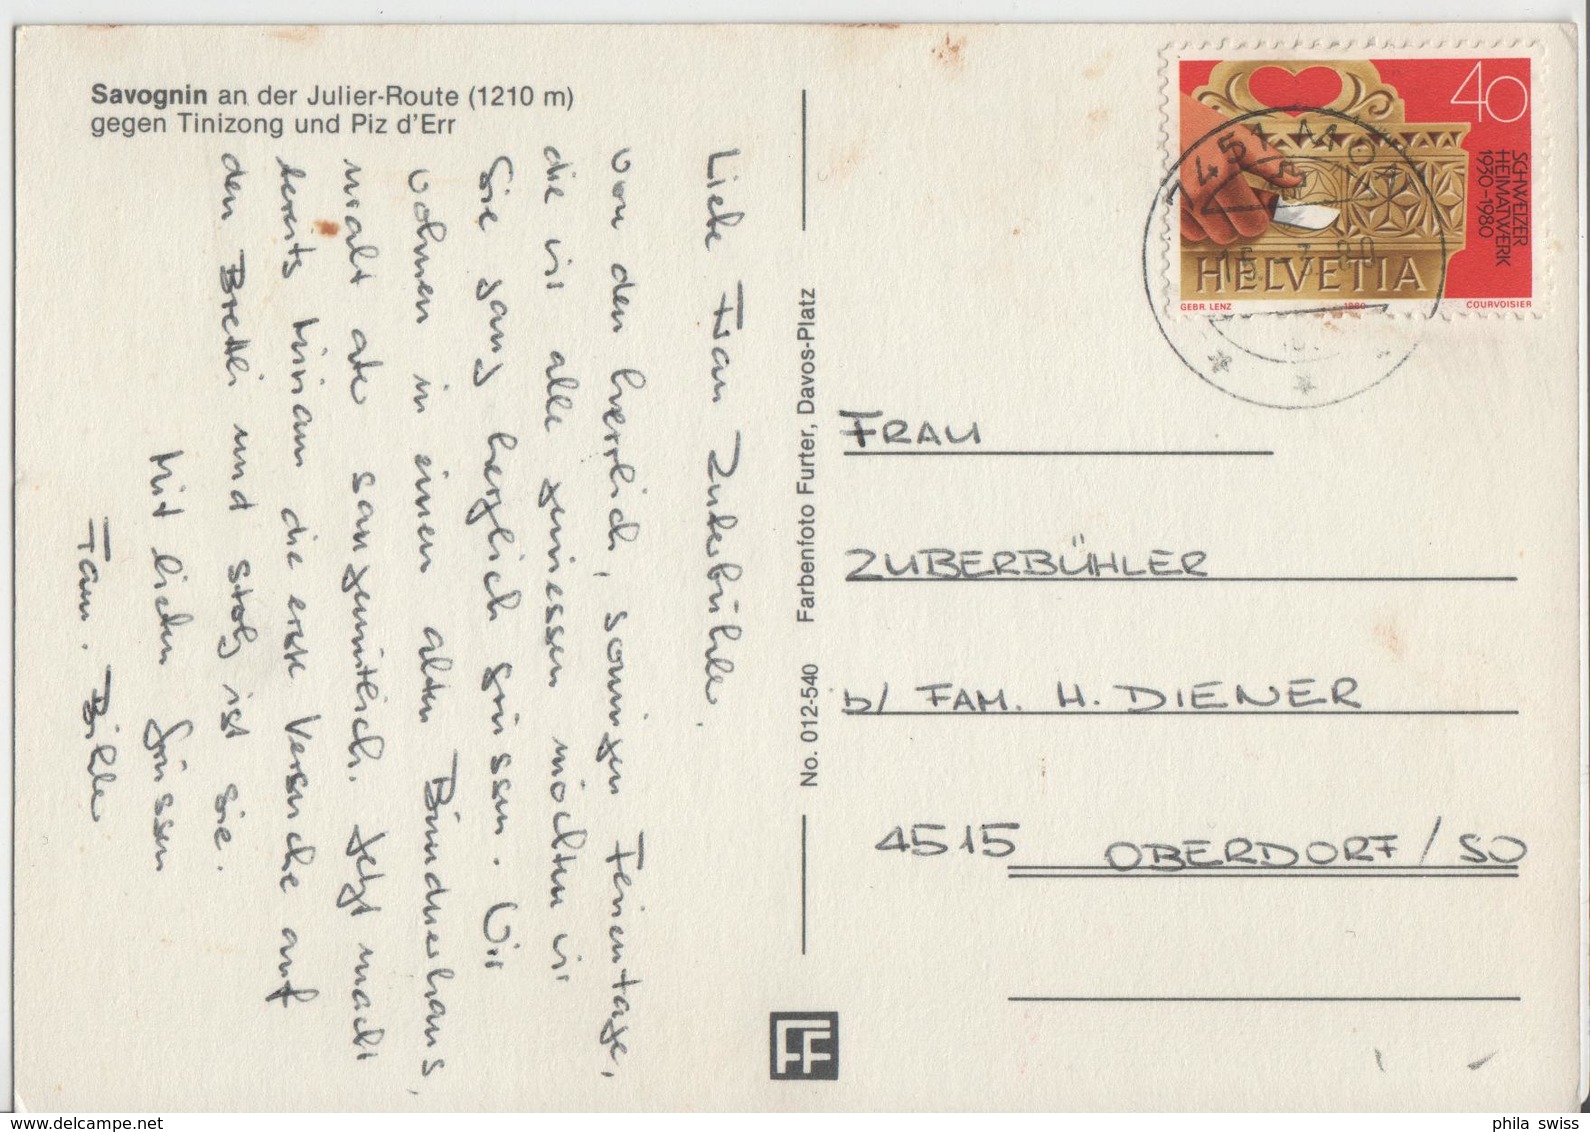 Savognin an der Julier-Route (1210 m)
gegen Tinizong und Piz d'Err
Liebe Frau Zuberbühler,
von den herrlich, sonnigen Ferientage,
die wir alle geniessen möchten wir
Sie ganz herzlich grüssen. Wir
wohnen in einem alten Bündnerhaus,
uralt aber saugemütlich. Jetzt macht
bereits Miriam die erste Versuche auf
den Brettli und stolz ist sie.
Mit lieben Grüssen
Fam.
No. 012-540 Farbenfoto Furter, Davos-Platz
FF
40
SCHWEIZER
HEIMATWERK
1930-1980
HELVETIA
GEBR. LENZ 1980 COURVOISIER
7451
FRAU
ZUBERBÜHLER
b/ FAM. H. DIENER
4515 OBERDORF / SO
phila swiss